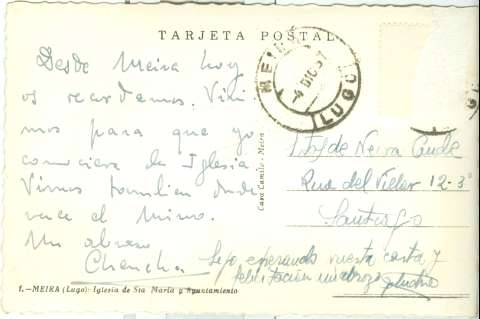 TARJETA POSTAL
MEIRA
4 DIC 57
LUGO
Desde Meira hoy
os recordamos. Vini-
mos para que yo
conociera la Iglesia.
Vimos tambien donde
nace el Miño.
Un abrazo
Chencha
de Neira
Rua del Villar 12-3º
Santiago
esperando vuestra carta y
un abrazo
Casa Camilo - Meira
1.—MEIRA (Lugo): Iglesia de Sta María y Ayuntamiento